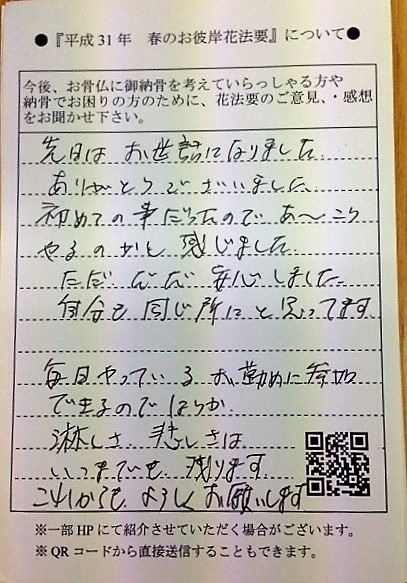 ●『平成31年 春のお彼岸花法要』について●
今後、お骨仏に御納骨を考えていらっしゃる方や
納骨でお困りの方のために、花法要のご意見、・感想
をお聞かせ下さい。
先日は お世話になりました
ありがとうございました
初めての事だったので あ〜こう
やるのかと 感じました
ただただ 安心しました
自分も 同じ所にと思ってます
毎日やっている お勤めに参加
できるのでしょうか
淋しさ 悲しさは
いつまでも 残ります
これからも よろしくお願いします
※一部HPにて紹介させていただく場合がございます。
※QRコードから直接送信することもできます。